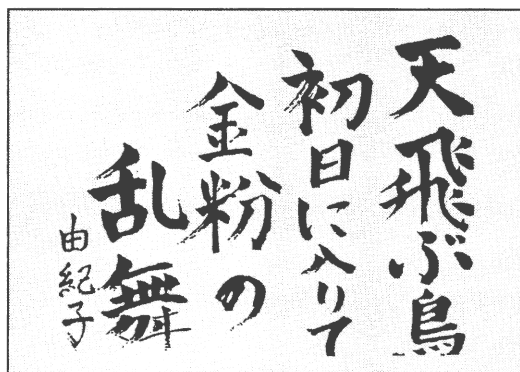 天飛ぶ鳥
初日に入りて
金粉の
乱舞
由紀子